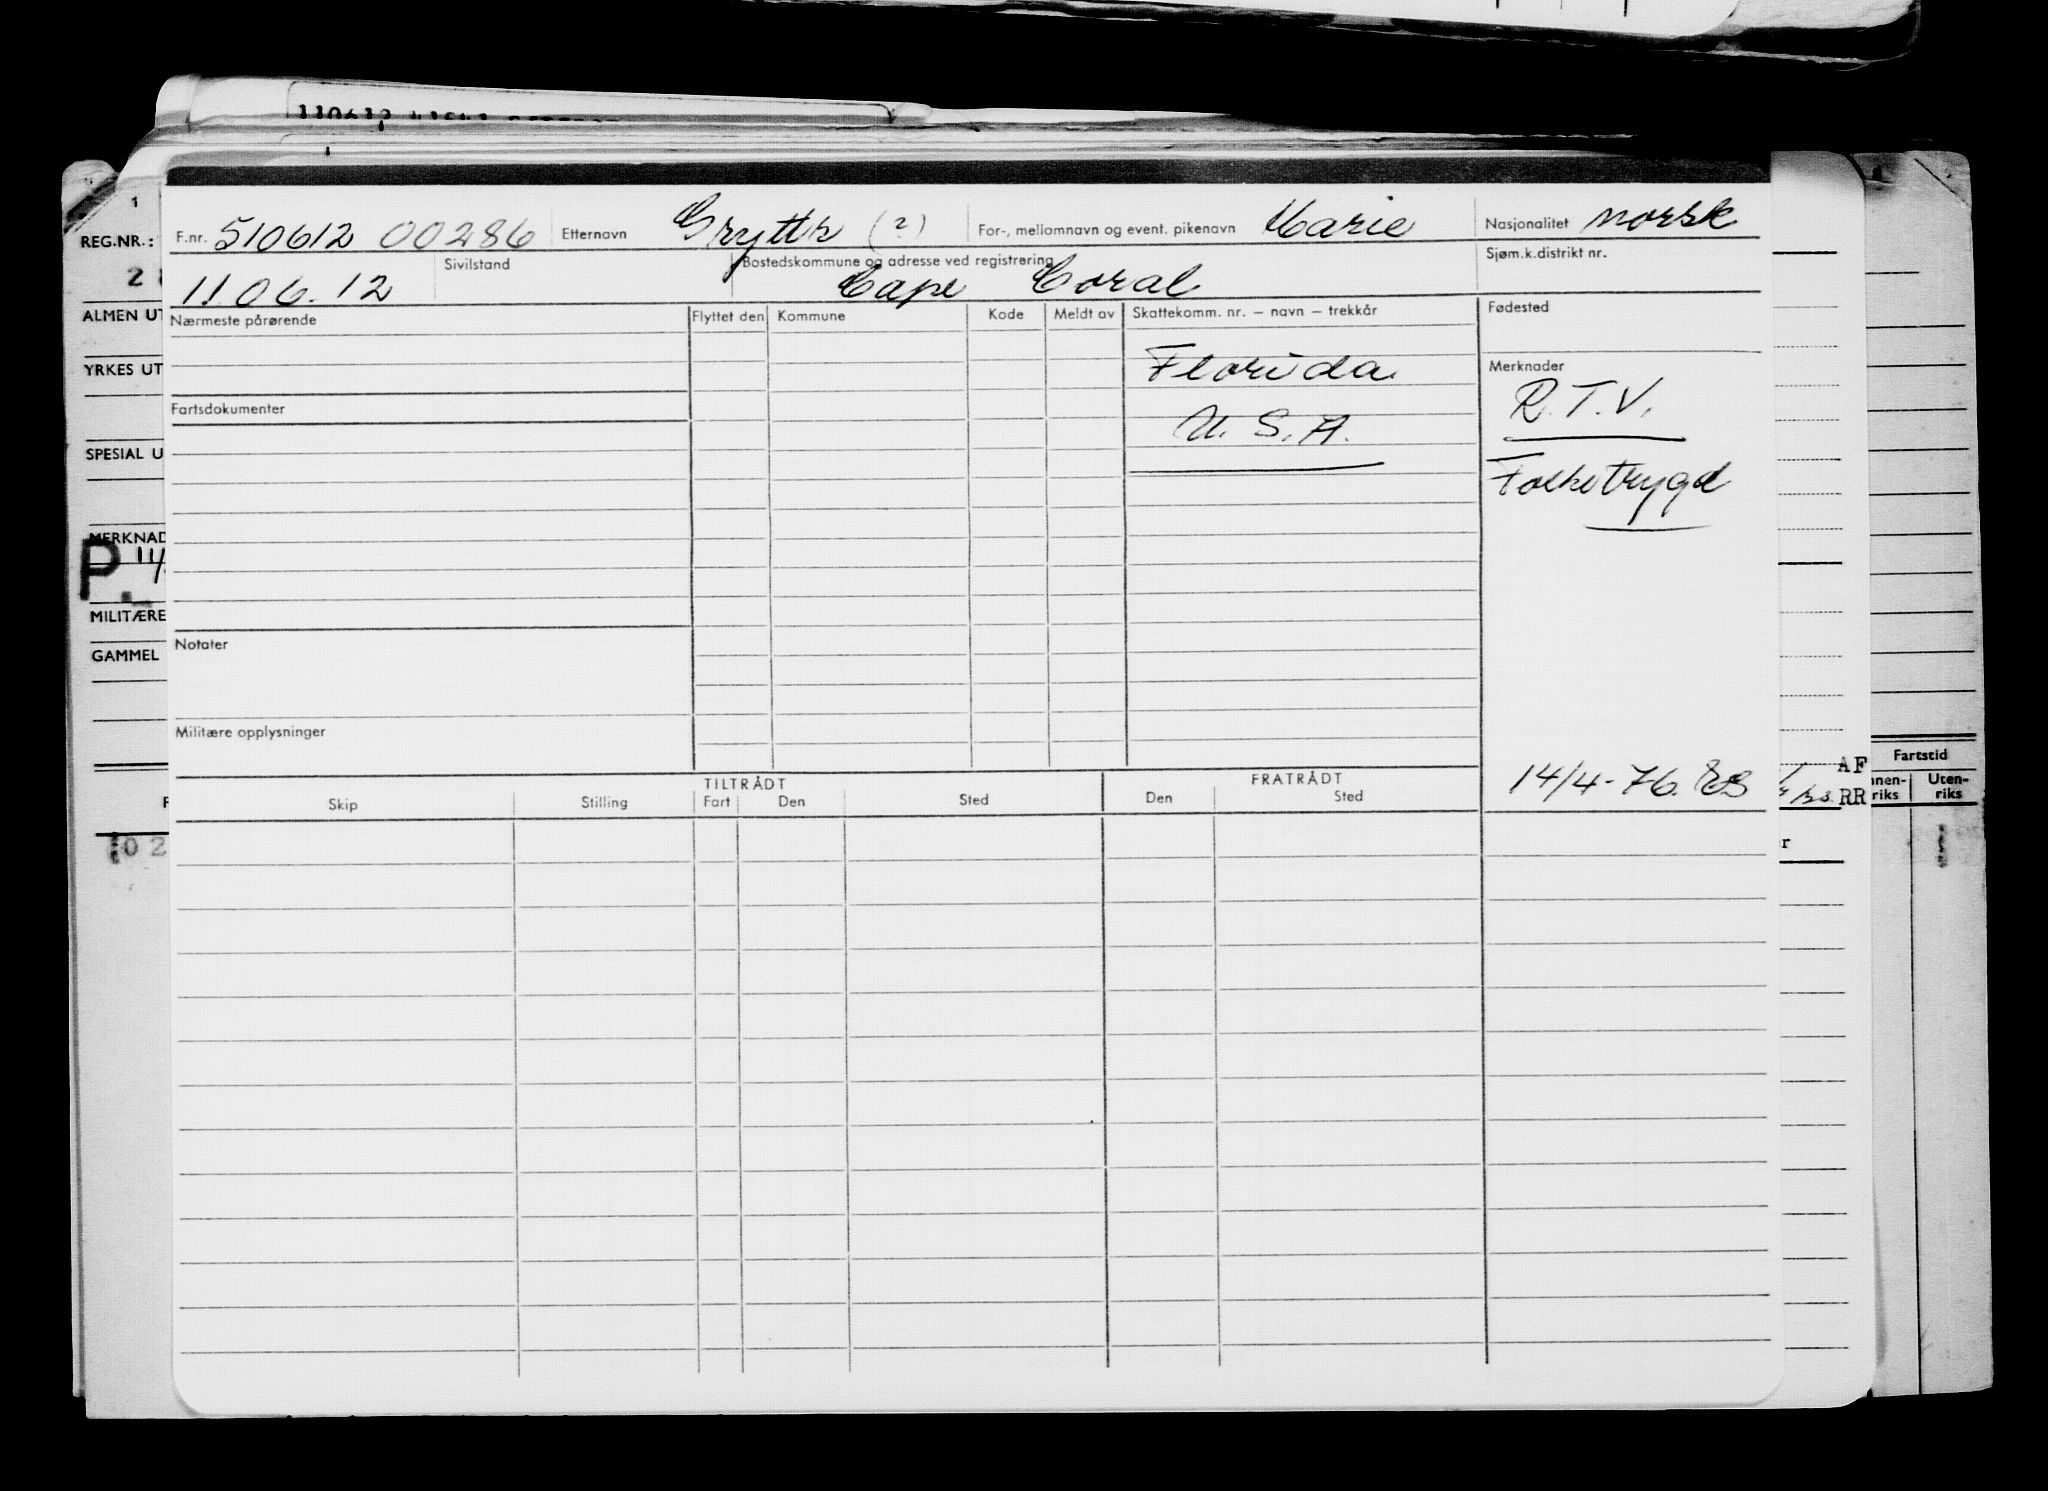 110612
1
REG.NR.:
F.nr. 510612 00286 Etternavn Grytth (?) For-, mellomnavn og event. pikenavn Marie Nasjonalitet norsk
11 06. 12 Sivilstand Bostedskommune og adresse ved registrering Cape Coral Sjøm.k.distrikt nr.
ALMEN UT
Nærmeste pårørende Flyttet den Kommune Kode Meldt av Skattekomm. nr. – navn – trekkår Fødested
Florida
YRKES UT
Merknader
R.T.V.
Fartsdokumenter
U.S.A.
SPESIAL U
Folketrygd
MERKNAD
P.
MILITÆRE
GAMMEL
Notater
Militære opplysninger
14/4-76.
TILTRÅDT FRATRÅDT
Skip Stilling Fart Den Sted Den Sted
AF
RR
Fartstid
riks Uten-
riks
02